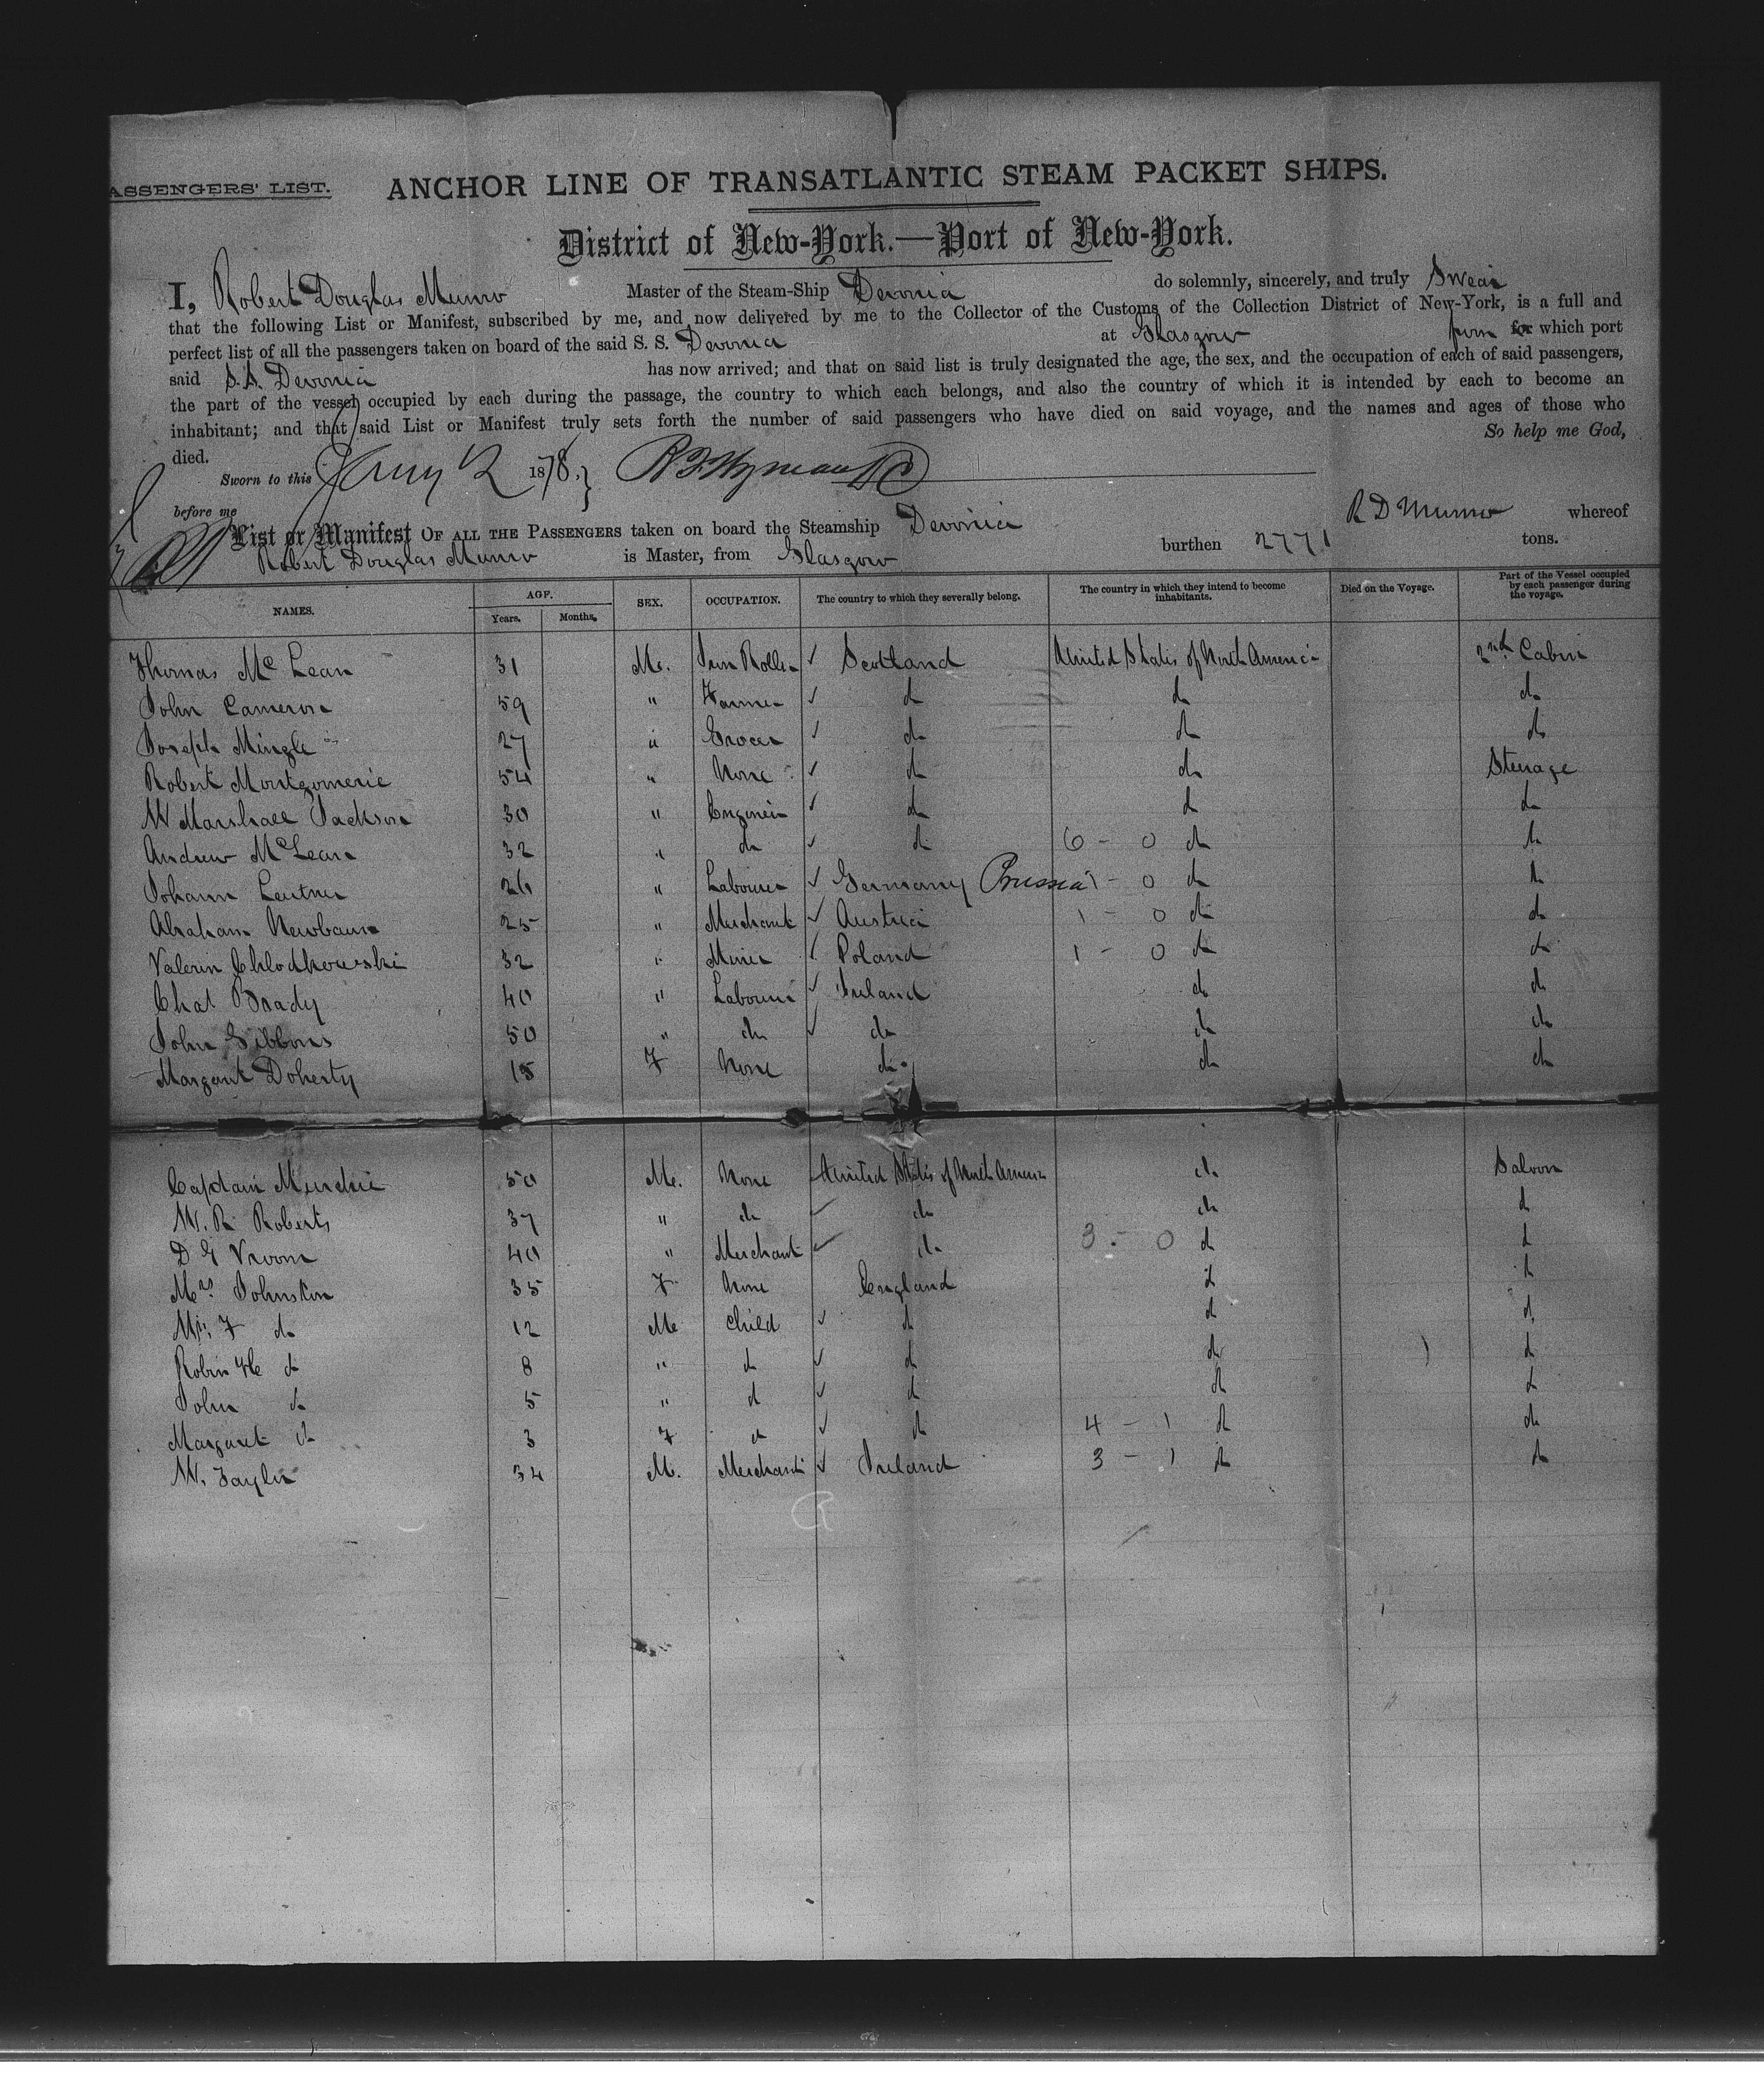 ASSENGERS' LIST. ANCHOR LINE OF TRANSATLANTIC STEAM PACKET SHIPS.
District of New-York.—Port of New-York.
I, Robert Douglas Munro Master of the Steam-Ship Devonia do solemnly, sincerely, and truly Swear
that the following List or Manifest, subscribed by me, and now delivered by me to the Collector of the Customs of the Collection District of New-York, is a full and
perfect list of all the passengers taken on board of the said S. S. Devonia at Glasgow from for which port
said S.S. Devonia has now arrived; and that on said list is truly designated the age, the sex, and the occupation of each of said passengers,
the part of the vessel occupied by each during the passage, the country to which each belongs, and also the country of which it is intended by each to become an
inhabitant; and that said List or Manifest truly sets forth the number of said passengers who have died on said voyage, and the names and ages of those who
died. So help me God,
Sworn to this Jany 2 1878,
before me R D Munro
List or Manifest OF ALL THE PASSENGERS taken on board the Steamship Devonia whereof
Robert Douglas Munro is Master, from Glasgow burthen 2771 tons.
NAMES. AGE. Years. Months. SEX. OCCUPATION. The country to which they severally belong. The country in which they intend to become inhabitants. Died on the Voyage. Part of the Vessel occupied by each passenger during the voyage.
Thomas Mc Lean 31 M. Iron Roller ✓ Scotland United States of North America 2nd Cabin
John Cameron 59 " Farmer ✓ do do do
Joseph Mingle 27 " Grocer ✓ do do do
Robert Montgomerie 54 " None ✓ do do Steerage
W Marshall Jackson 30 " Engineer ✓ do do do
Andrew McLean 32 " do ✓ do 6 - 0 do do
Johann Leutner 26 " Labourer ✓ Germany Prussia 1 - 0 do do
Abraham Newbaum 25 " Merchant ✓ Austria 1 - 0 do do
Valerin Chlodkowski 32 " Miner ✓ Poland 1 - 0 do do
Chat Brady 40 " Labourer ✓ Ireland do do
John Gibbons 50 " do ✓ do do do
Margaret Doherty 15 F None do do do
Captain Murchie 50 M. None United States of North America do Saloon
W. R. Roberts 37 " do do do do
D G Vroom 40 " Merchant do 3 - 0 do do
Mrs Johnston 35 F None England do do
F do 12 M child ✓ do do do
Robin do 8 " do ✓ do do do
John do 5 " do ✓ do do do
Margaret do 3 F do ✓ do 4 - 1 do do
W. Taylor 34 M. Merchant ✓ Ireland 3 - 1 do do